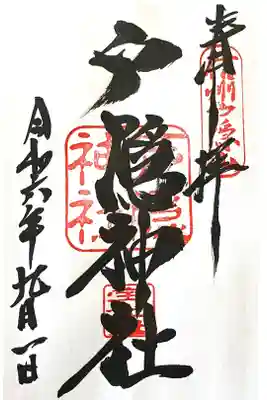 奉拝
戸隠神社
令和六年九月一日